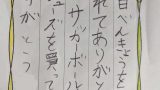 日べんきょうを
れてありがと
サガーボール
ズを買って
がとう